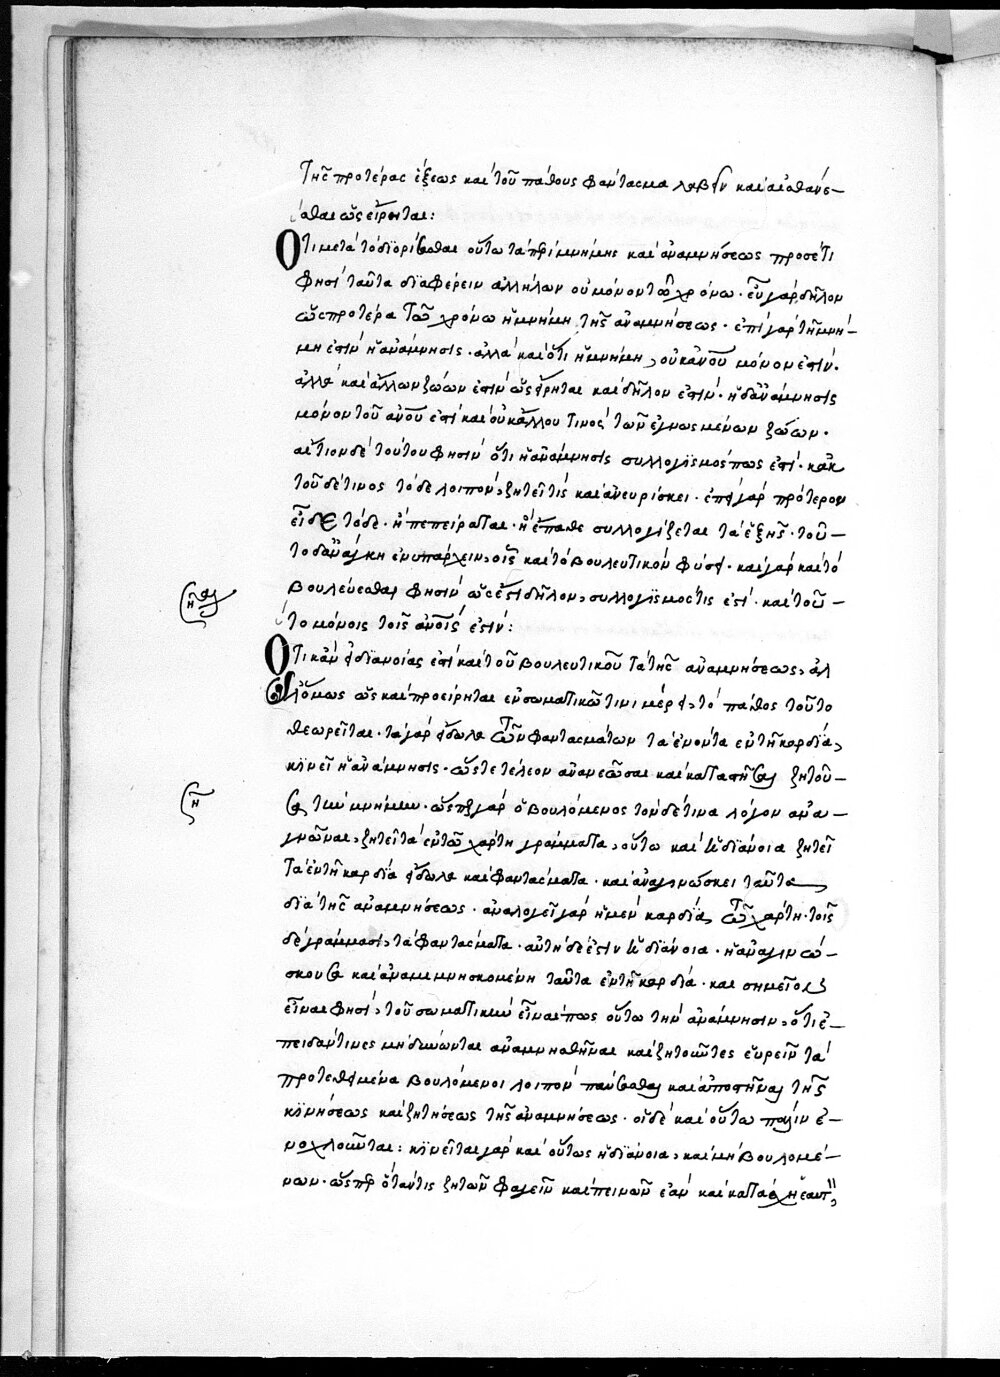 τῆς προτέρας ἕξεως καὶ τοῦ πάθους φαντασμα λαβεῖν καὶ αἰσθανέ-
σθαι ὡς εἴρηται:
Ὅτι μετὰ τὸ διορίσασθαι οὕτω τὰ περὶ μνήμης καὶ ἀναμνήσεως προσέτι
φησὶ ταῦτα διαφέρειν ἀλλήλων οὐ μόνον τῷ χρόνω. εὖ γὰρ δῆλον
ὡς προτέρα τῶ χρόνω ἡ μνήμη τῆς ἀναμνήσεως. ἐπὶ γὰρ τῆ μνή-
μη ἐστὶν ἡ ἀνάμνησις. ἀλλὰ καὶ ὅτι ἡ μνήμη, οὐκ ἀνοῦ μόνον ἐστίν.
ἀλλὰ καὶ ἄλλων ζώων ἐστὶν ὡς εἴρηται καὶ δῆλον ἐστίν. ἡ δ' ἀνάμνησις
μόνον τοῦ ἀνοῦ ἐστὶ καὶ οὐκ ἄλλου τινὸς τῶν ἐγνωσμένων ζώων.
αἴτιον δὲ τούτου φησὶν ὅτι ἡ ἀνάμνησις συλλογισμός πως ἐστί. κἀκ
τοῦδέ τινος τόδε λοιπὸν, ζητεῖ τίς καὶ ἀνευρίσκει. ἐπεὶ γὰρ πρότερον
εἶδε τόδε. ἢ πεπείραται. ἢ ἔπαθε συλλογίζεται τὰ ἑξῆς. τοῦ-
το δ' ἀνάγκη ἐνυπάρχειν, οἷς καὶ τὸ βουλευτικὸν φύσει. καὶ γὰρ καὶ τὸ
βουλεύεσθαι φησὶν ὡς ἔστι δῆλον, συλλογισμός τις ἐστί. καὶ τοῦ-
το μόνοις τοῖς ἀνοῖς ἐστίν:
Ὅτι κἂν ἡ διανοίας ἐστὶ καὶ τοῦ βουλευτικοῦ τὰ τῆς ἀναμνήσεως, ἀλ
λ' ὅμως ὡς καὶ προείρηται ἐν σωματικῶ τινι μέρει, τὸ πάθος τοῦτο
θεωρεῖται. τὰ γὰρ εἴδωλα τῶν φαντασμάτων τὰ ἐνόντα ἐν τῆ καρδία,
κινεῖ ἡ ἀνάμνησις. ὥστε τέλεον ἀνανεῶσαι καὶ καταστῆσαι ζητοῦ-
σα τὴν μνήμην. ὥσπερ γὰρ ὁ βουλόμενος τόνδέ τινα λόγον ἀνα-
γνῶναι, ζητεῖ τὰ ἐν τῶ χάρτη γράμματα, οὕτω καὶ ἡ διάνοια ζητεῖ
τὰ ἐν τῆ καρδία εἴδωλα καὶ φαντάσματα. καὶ ἀναγινώσκει ταῦτα
διὰ τῆς ἀναμνήσεως. ἀναλογεῖ γὰρ ἡ μὲν καρδία, τῶ χάρτη. τοῖς
δὲ γράμμασι, τὰ φαντάσματα. αὐτὴ δέ ἐστιν ἡ διάνοια. ἡ ἀναγινώ-
σκουσα καὶ ἀναμιμνησκομένη ταῦτα ἐν τῆ καρδία. καὶ σημεῖον
εἶναι φησὶ, τοῦ σωματικὴν εἶναί πως οὕτω τὴν ἀνάμνησιν, ὅτι ἐ-
πειδάν τινες μὴ δύνωνται ἀναμνησθῆναι καὶ ζητοῦντες εὑρεῖν τὰ
προτεθειμένα βουλόμενοι λοιπὸν παύσασθαι καὶ ἀποστῆναι τῆς
κινήσεως καὶ ζητήσεως τῆς ἀναμνήσεως. οἱ δὲ καὶ οὕτω πάλιν ἐ-
νοχλοῦνται: κινεῖται γὰρ καὶ οὕτως ἡ διάνοια, καὶ μὴ βουλομέ-
νων. ὥσπερ ὅταν τις ζητῶν φαγεῖν καὶ πεινῶν ἐὰν καὶ κατάσχη ἑαυτ